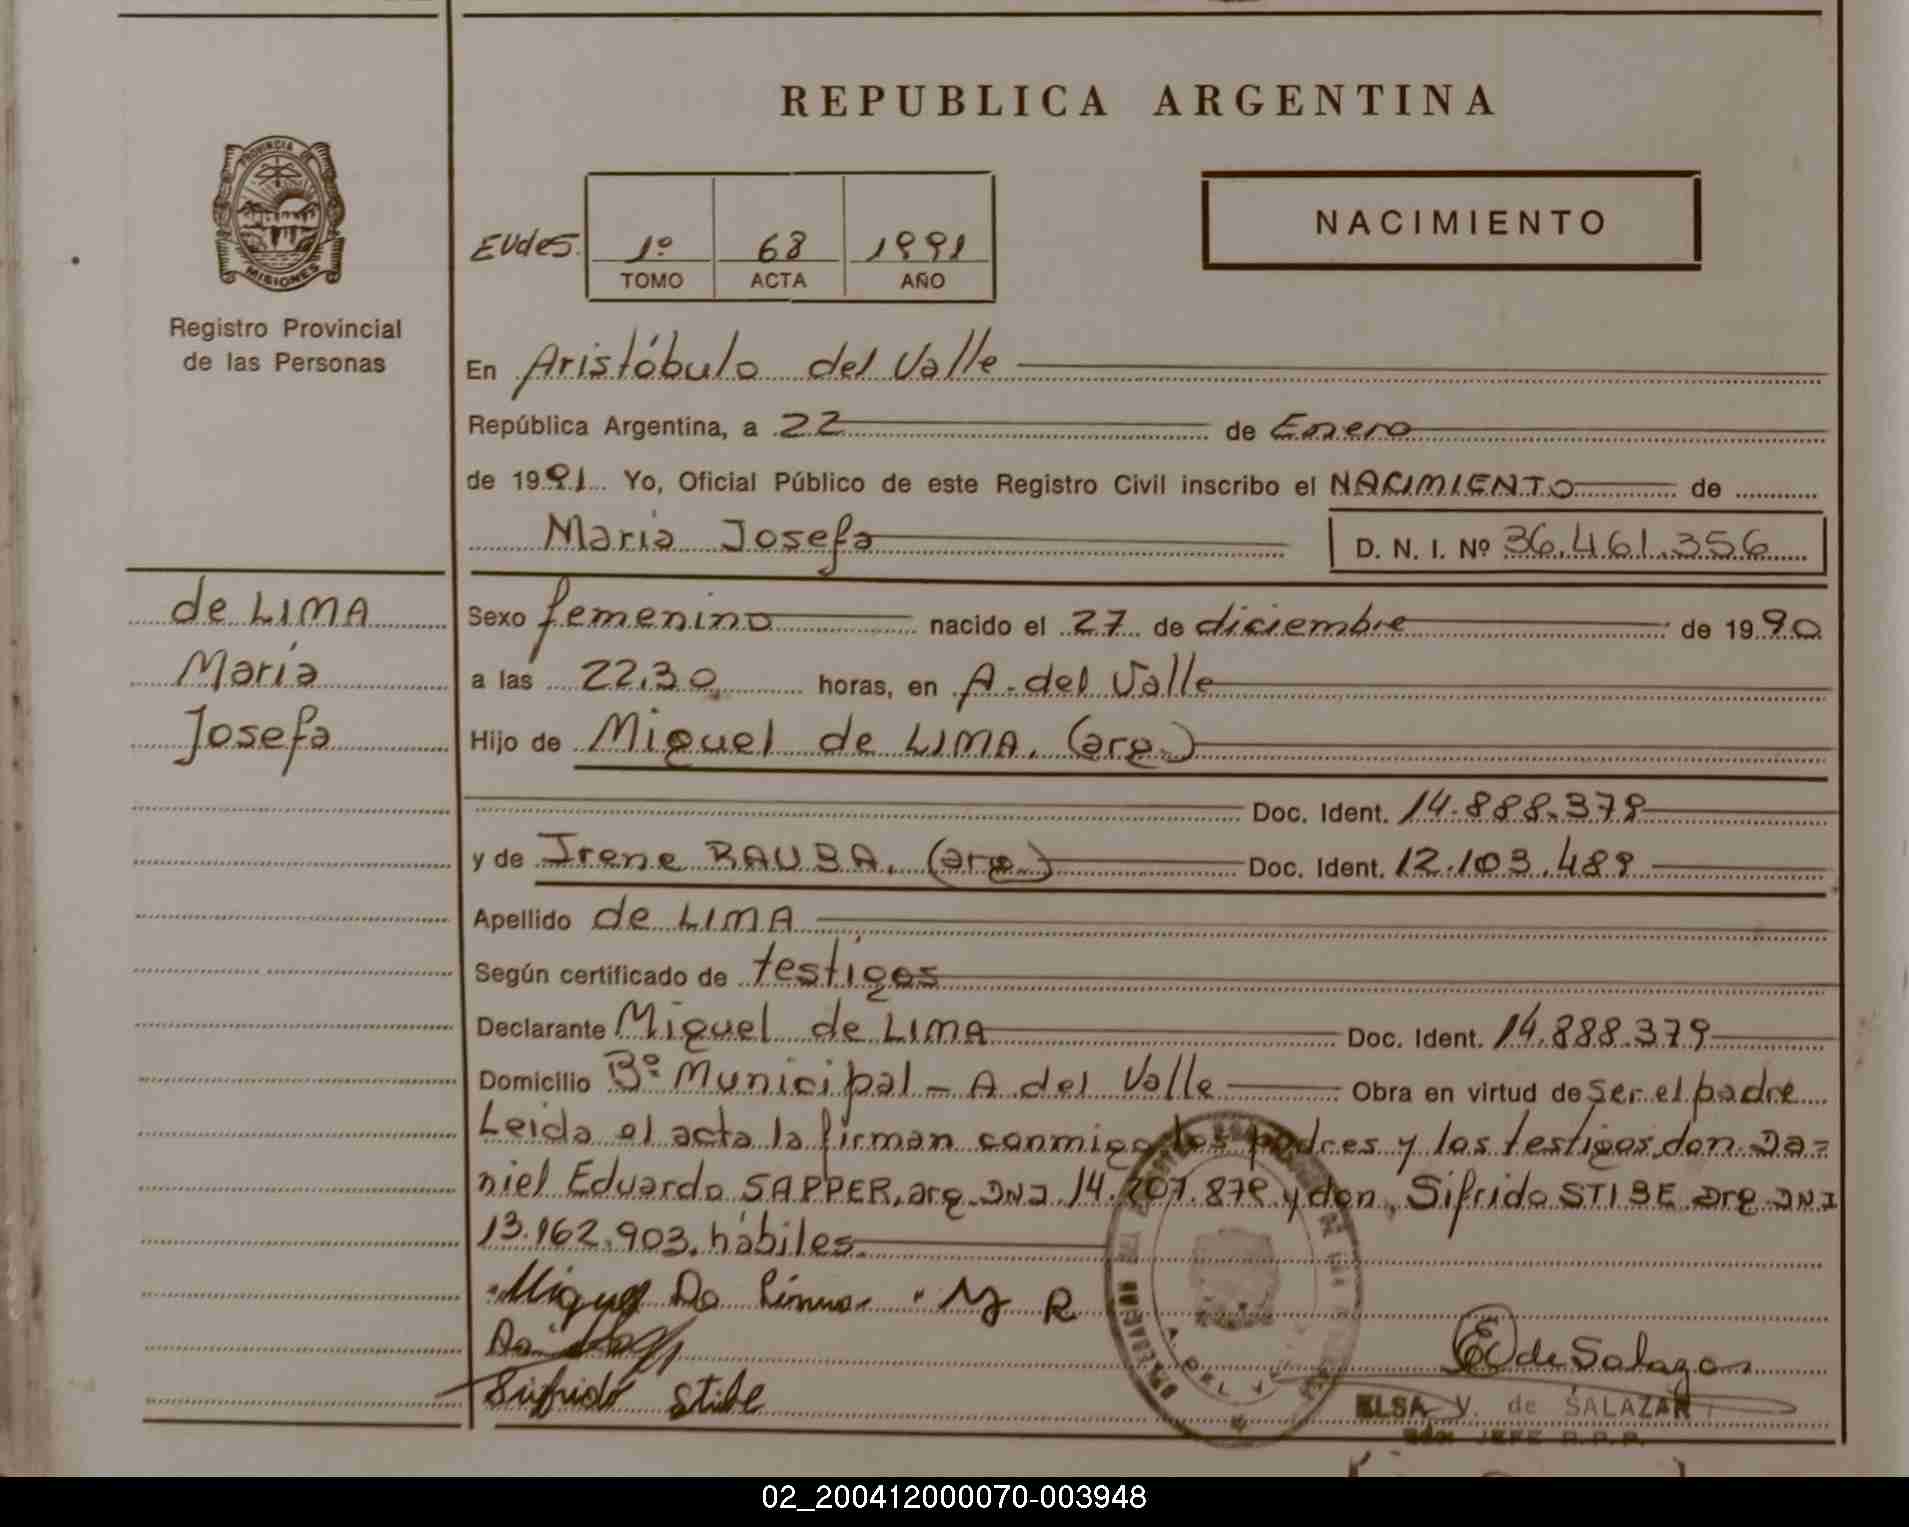 REPUBLICA ARGENTINA
PROVINCIA DE
MISIONES
Registro Provincial
de las Personas
NACIMIENTO
EUdeS. 1º 68 1991
TOMO ACTA AÑO
En Aristóbulo del Valle
República Argentina, a 22 de Enero
de 1991 Yo, Oficial Público de este Registro Civil inscribo el NACIMIENTO de
Maria Josefa D. N. I. Nº 36.461.356
de LIMA
María
Josefa
Sexo femenino nacido el 27 de diciembre de 1990
a las 22,30 horas, en A. del Valle
Hijo de Miguel de LIMA. (arg.)
Doc. Ident. 14.888.379
y de Irene RAUBA. (arg.) Doc. Ident. 12.103.489
Apellido de LIMA
Según certificado de testigos
Declarante Miguel de LIMA Doc. Ident. 14.888.379
Domicilio Bº Municipal - A. del Valle Obra en virtud de ser el padre
Leida el acta la firman conmigo los padres y los testigos don Da=
niel Eduardo SAPPER, arg. DNI 14.207.879 y don, Sifrido STIBE arg DNI
13.162.903. hábiles.
Miguel De Lima M R
Sifrido Stibe
E de Salazar
ELSA V. de SALAZAR
JEFE R.P.P.
02_200412000070-003948